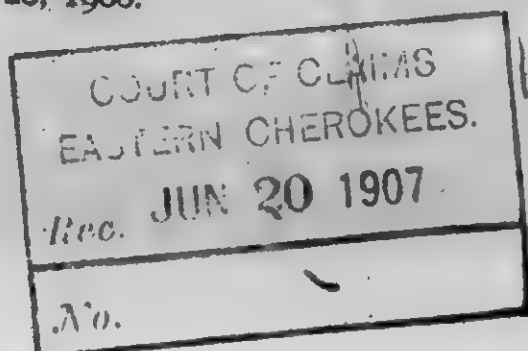 1906.
COURT OF CLAIMS
EASTERN CHEROKEES.
Rec. JUN 20 1907
No.